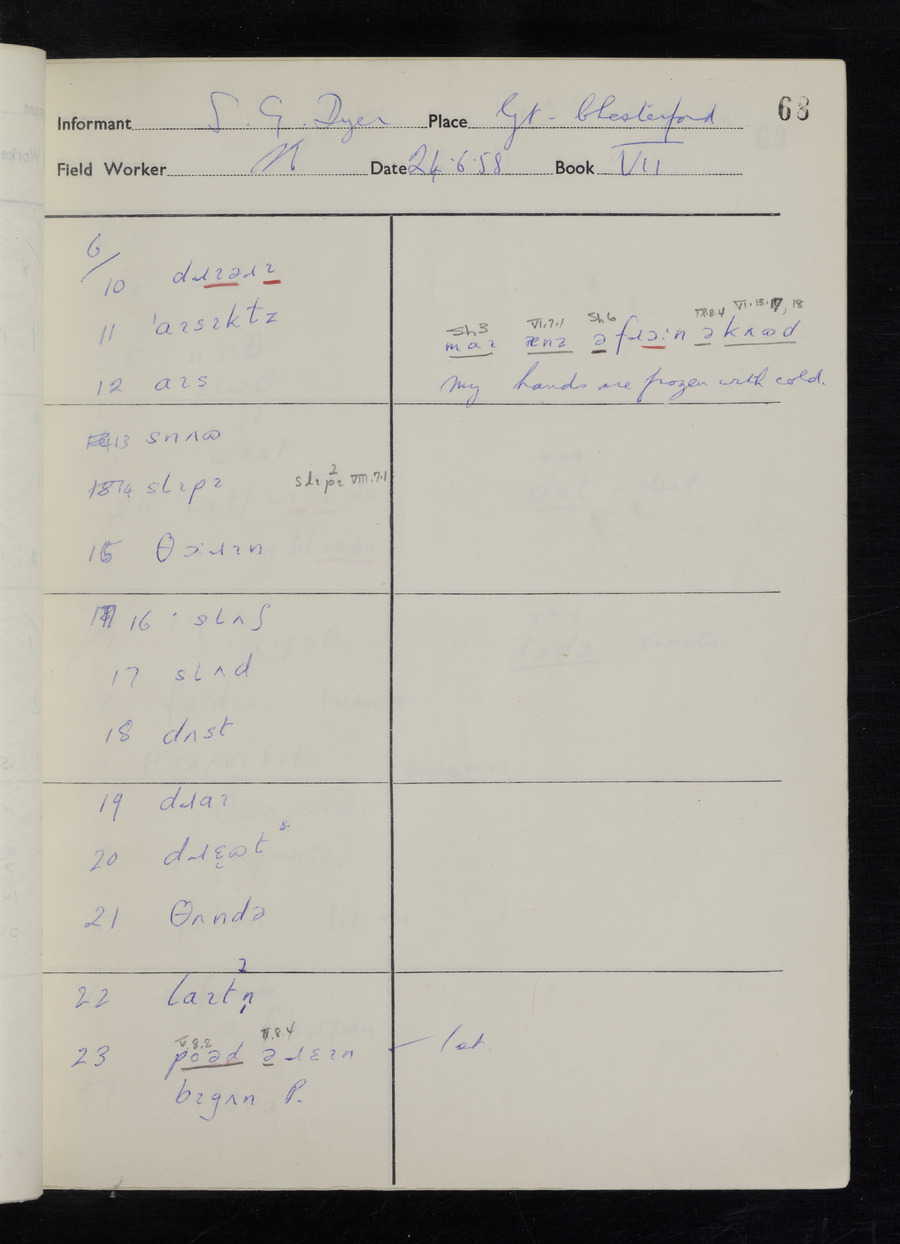 68
Informant S. G. Dyer Place Gt. Chesterford
Field Worker Date 24.6.58 Book VII
6/
10 dɹɪzəɹɪ
11 'aɪsɪktz
sh3 VI.7.1 sh6 VI.13.17, 18
maɪ ænz ə fɹɔ:n ə knɷd
12 aɪs
my hands are frozen with cold.
13 snʌɷ
14 slɪpɪ slɪpɪ VIII.7.1
15 θɔ:ɹɪn
16 slʌʃ
17 slʌd
18 dʌst
19 dɹaɪ
20 dɹɛɷt
21 θʌndə
22 laɪtn̩
V.8.2
23 poəd ə ɹɛɪn
bɪgʌn P.